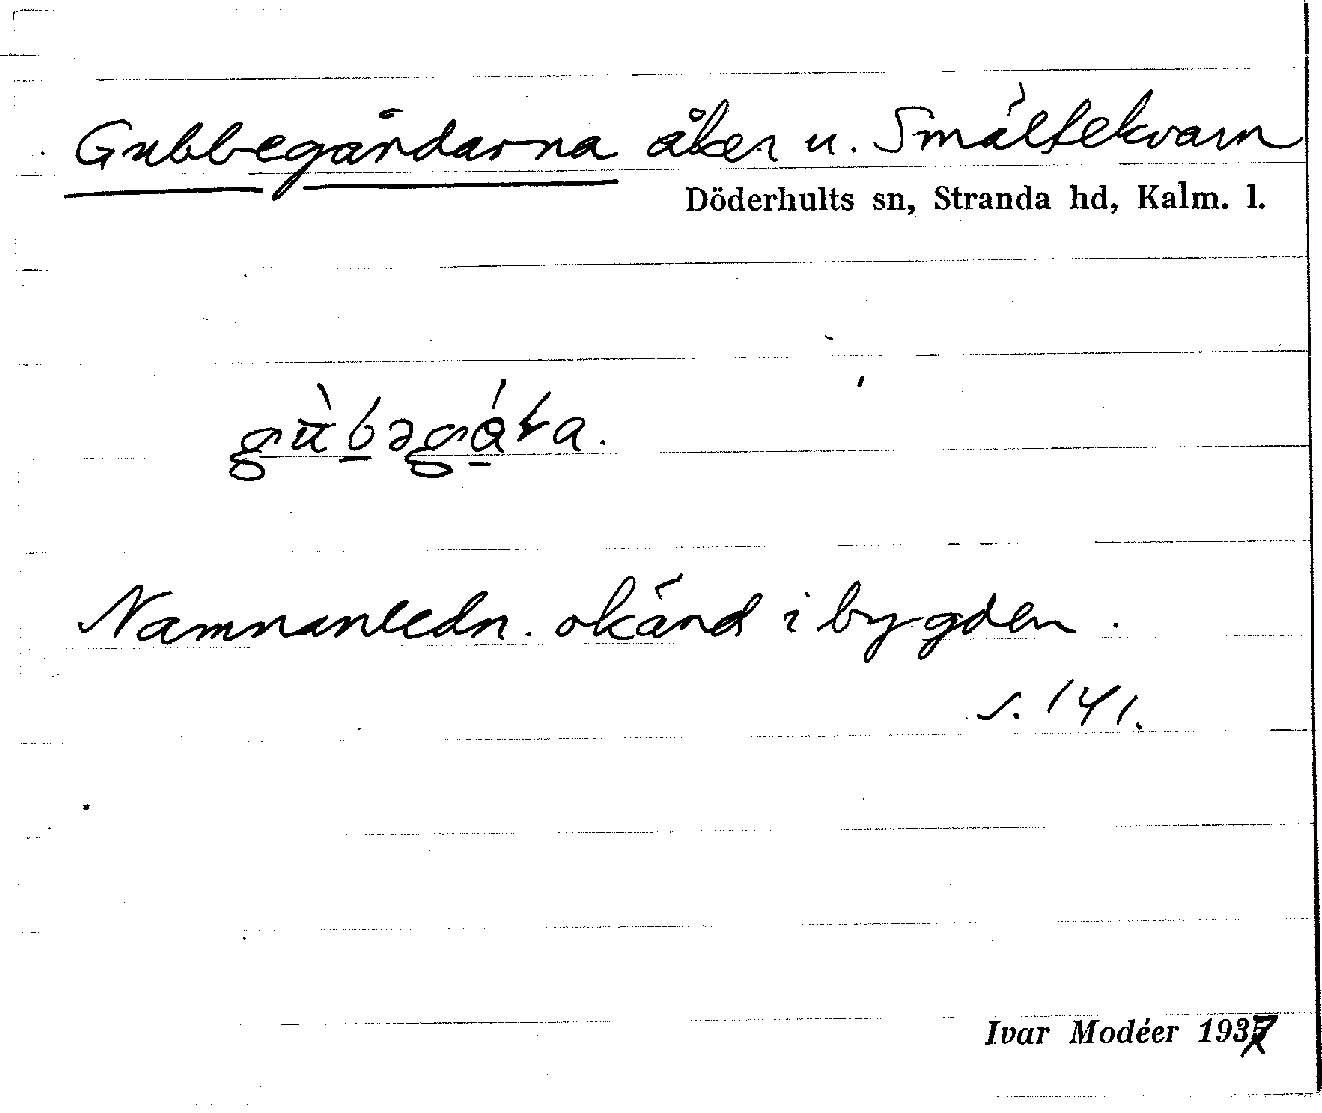 Gubbegårdarna åker u. Smältekvarn
Döderhults sn, Stranda hd, Kalm. l.
Namnanledn. okänd i bygden.
s. 141.
Ivar Modéer 1937